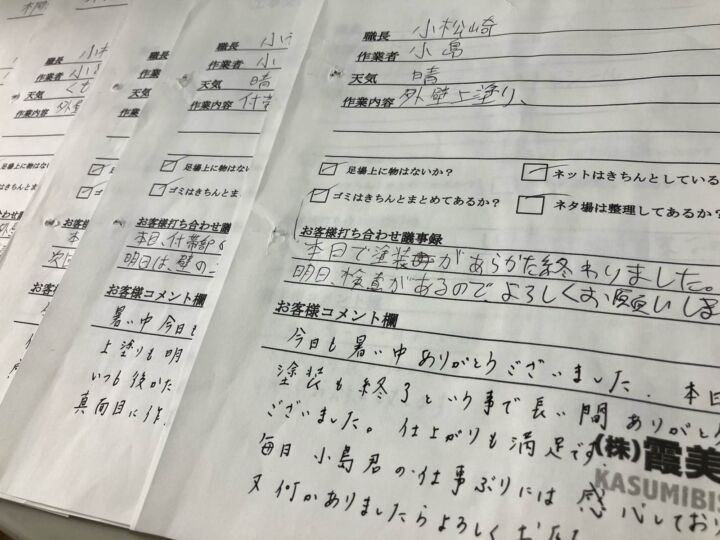 職長 小松崎
作業者 小島
天気 晴
作業内容 外壁上塗り、
足場上に物はないか?
ネットはきちんとしている
ゴミはきちんとまとめてあるか?
ネタ場は整理してあるか?
お客様打ち合わせ議事録
本日で塗装があらかた終わりました。
明日、検査があるのでよろしくお願いしま
お客様コメント欄
今日も暑い中ありがとうございました. 本日
塗装も終了という事で長い間ありがとう
ございました。仕上がりも満足です
毎日小島君の仕事ぶりには感心してお
又何かありましたらよろしくお
(株)霞美
KASUMIBIS
職長 小
作業者 小
天気 晴
作業内容 付帯
足場上に物は
ゴミはきちんとま
お客様打ち合わせ議
本日、付帯部
明日は、壁の
お客様コメント欄
暑い中今日も
上塗りも明
いつも後かた
真面目に作
職長 小
作業者 小
天気 くも
作業内容 外壁
お客様
本
次に
お客